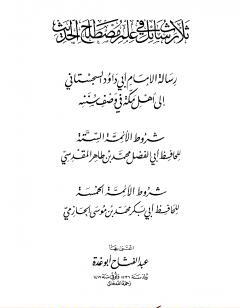 ثلاث رسائل في علم مصطلح الحديث
رسالة الإمام أبي داود السجستاني
إلى أهل مكة في وصف سننه
شروط الأئمة الستة
للحافظ أبي الفضل محمد بن طاهر المقدسي
شروط الأئمة الخمسة
للحافظ أبي بكر محمد بن موسى الحازمي
اعتنى بها
عبد الفتاح أبو غدة